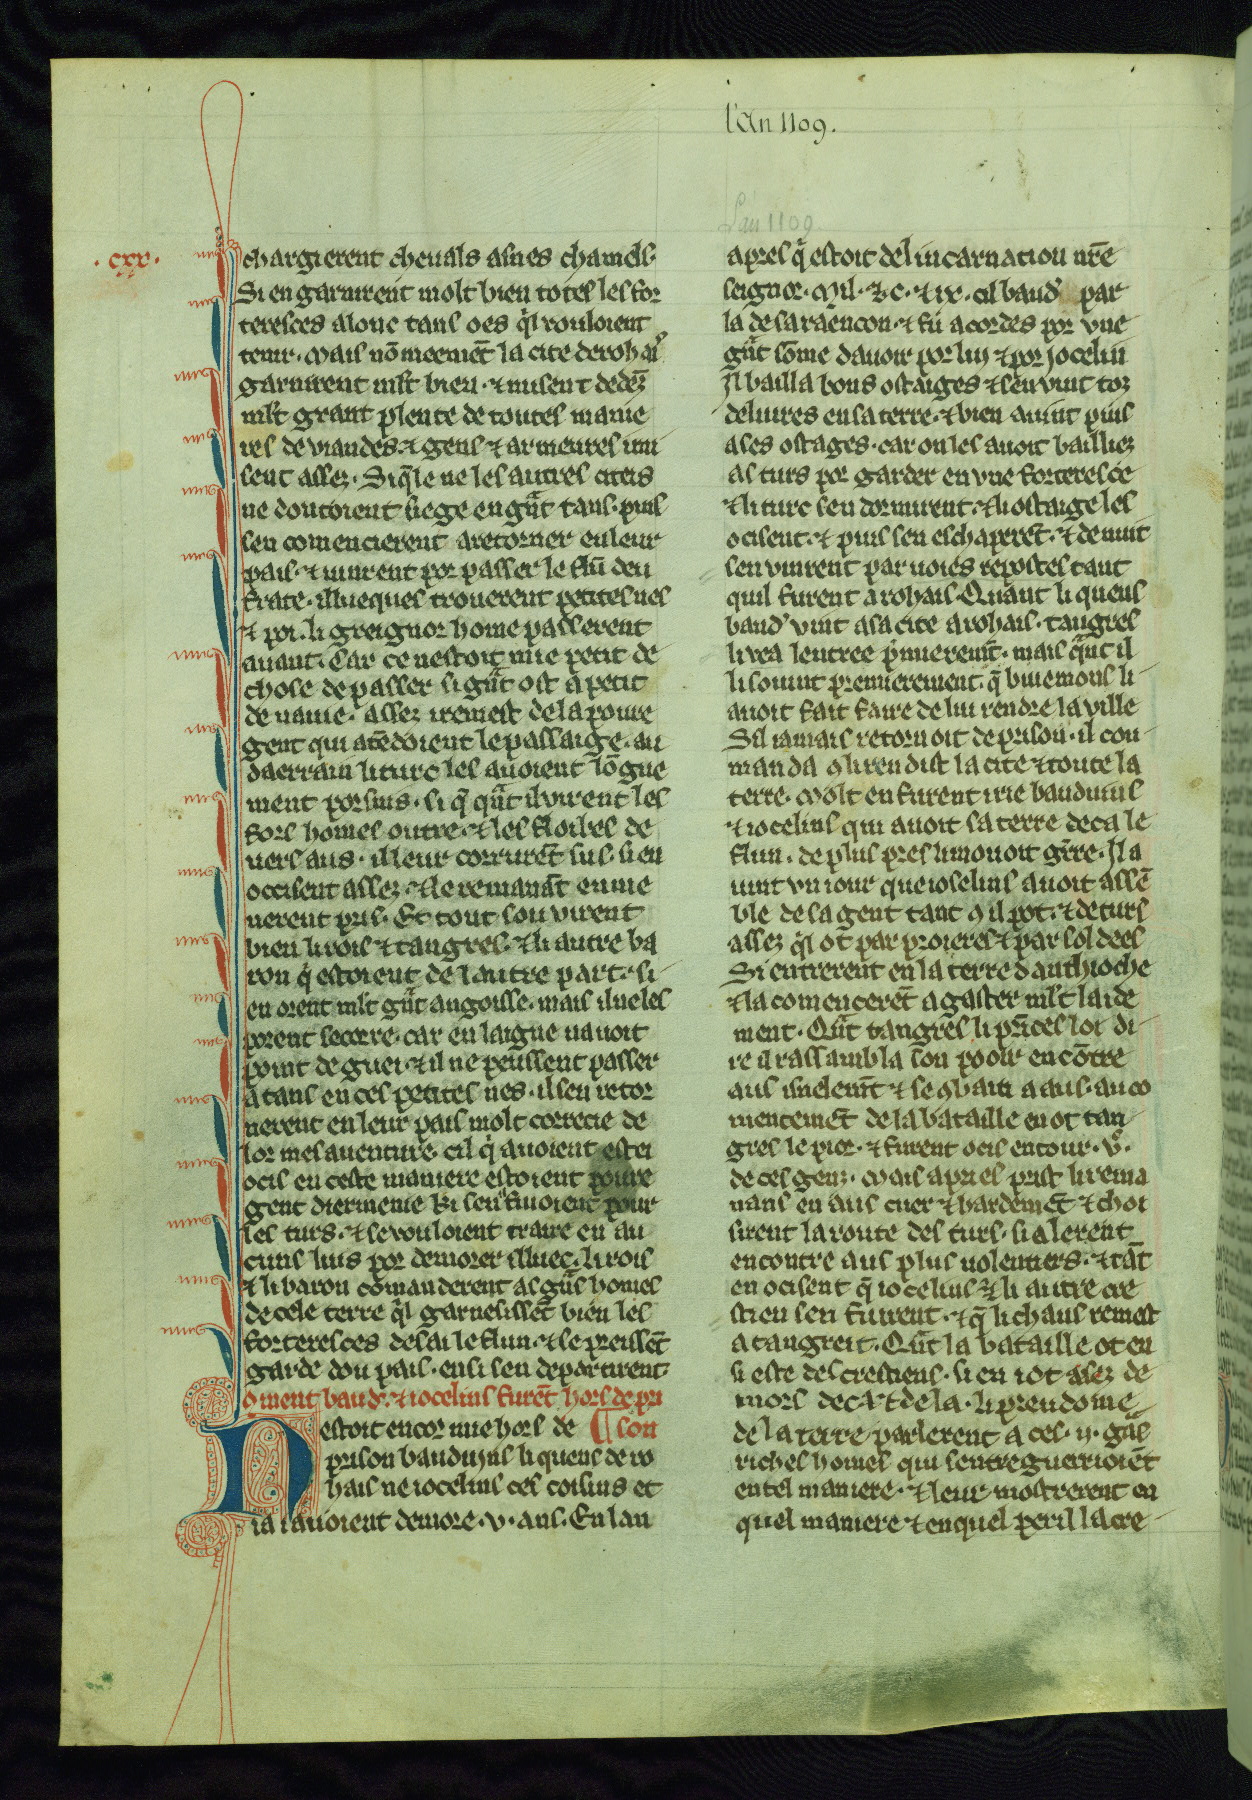 l'An 1109.
Lan 1109
.cxv.
chargierent cheuals asnes chamels.
Si en garnirent molt bien totes les for
teresces alone tans oes q̃l vouloient
tenir. Mais nõ meemẽt la cite de rohais
garnirent mlt bien. ⁊ misent dedẽz
mlt grant plente de toutes manie
res de viandes. ⁊ gens ⁊ armeures imi
sent assez. Si q̃le ne les autres citeis
ne doutoient siege en gñt tans. puis
sen comencierent aretorner enleur
pais. ⁊ uinrent por passer le flũ deu
frate. illueques trouerent petites nes
⁊ poi. li greignor home passerent
auant. Car ce nestoit mie petit de
chose de passer si gñt ost a petit
de nauie. assez iremest dela poure
gent qui atẽdoient le passaige. au
daerrain li turc les auoient lõgue
ment porsius. si q̃ q̃t il virent les
fors homes outre. ⁊ les floibes de
uers aus. il leur corrurẽt sus. si en
occisent assez. ⁊ le remanãt enme
nerent pris. Et tout son virent
bien li rois ⁊ tangres. ⁊ li autre ba
ron q̃ estoient de lautre part. si
en orent mlt gñt angoisse. mais il neles
porent secorre. car en laigue nauoit
point de guei. ⁊ il ne peussent passer
a tans en ces petites nes. il sen retor
nerent en leur pais molt correcie de
lor mesauenture. cil q̃ auoient estei
ocis en ceste maniere estoient poure
gent diermenie ki sen fuioient pour
les turs. ⁊ se vouloient traire en au
cuns lius por demorer illuec. li rois
⁊ li baron comanderent as gñs homes
de cele terre q̃l garnesissẽt bien les
forteresces desai le flun. ⁊ se preissẽt
garde dou pais. ensi sen departirent.
oment baud'. ⁊ iocelins furẽt hors de pri
estoit encor mie hors de ¶ son
prison bauduins li quens de ro
hais ne iocelins ces coisins et
ia i auoient demore .v. ans. En lan
apres q̃ estoit del incarnation nr̃e
seignor. Mil. ⁊ .c. ⁊ ix. cil baud' par
la de sa raencon. ⁊ fu acordes por vne
gñt sõme dauoir por lui ⁊ por jocelin
Il bailla bons ostaiges ⁊ sen vint toz
deliures en sa terre. ⁊ bien auint puis
ases ostages. car on les auoit bailliez
as turs por garder en vne forteresce
⁊ li turc sen dormirent. ⁊ li ostaige les
ocisent. ⁊ puis sen eschaperẽt. ⁊ de nuit
sen vinrent par uoies repostes tant
quil furent a rohais. Quant li quens
baud' vint a sa cite a rohais. tangres
li vea lentree p̃mieremẽt. mais q̃nt il
li souint premierement. q̃ buiemons li
auoit fait faire de lui rendre la ville
Sil iamais retornoit de prison. il con
manda 9 li rendist la cite ⁊ toute la
terre. Molt en furent irie bauduins
⁊ iocelins qui auoit sa terre deca le
flun. de plus pres li mouoit gẽrre. Il a
uint vn iour que ioselins auoit assẽ
ble de sa gent tant 9 il pot. ⁊ de turs
assez q̃l ot par proieres ⁊ par soldees
Si entrerent en la terre danthioche
⁊ la comencerẽt a gaster mlt laide
ment. Quñt tangres li prĩces loi di
re il rassambla son pooir encõtre
aus isnelemẽt ⁊ se 9bati a aus. au co
mencemẽt de la bataille en ot tan
gres le pior. ⁊ furent ocis entour .v.c
de ces genz. Mais apries prist li rema
nans en aus cuer ⁊ hardemẽt ⁊ choi
sirent la route des turs. si alerent
encontre aus plus uolentiers. ⁊ tãt
en ocisent q̃ iocelins ⁊ li autre cre
stien sen fuirent. ⁊ q̃ li chans remest
a tangreit. Quñt la bataille ot en
si este des crestiens. si en iot asez de
mors deca ⁊ de la. li preudome
de la terre parlerent a ces .ij. gñs
riches homes qui sentreguerrioiẽt
en tel maniere. ⁊ leur mostrerent en
quel maniere ⁊ en quel peril la cre